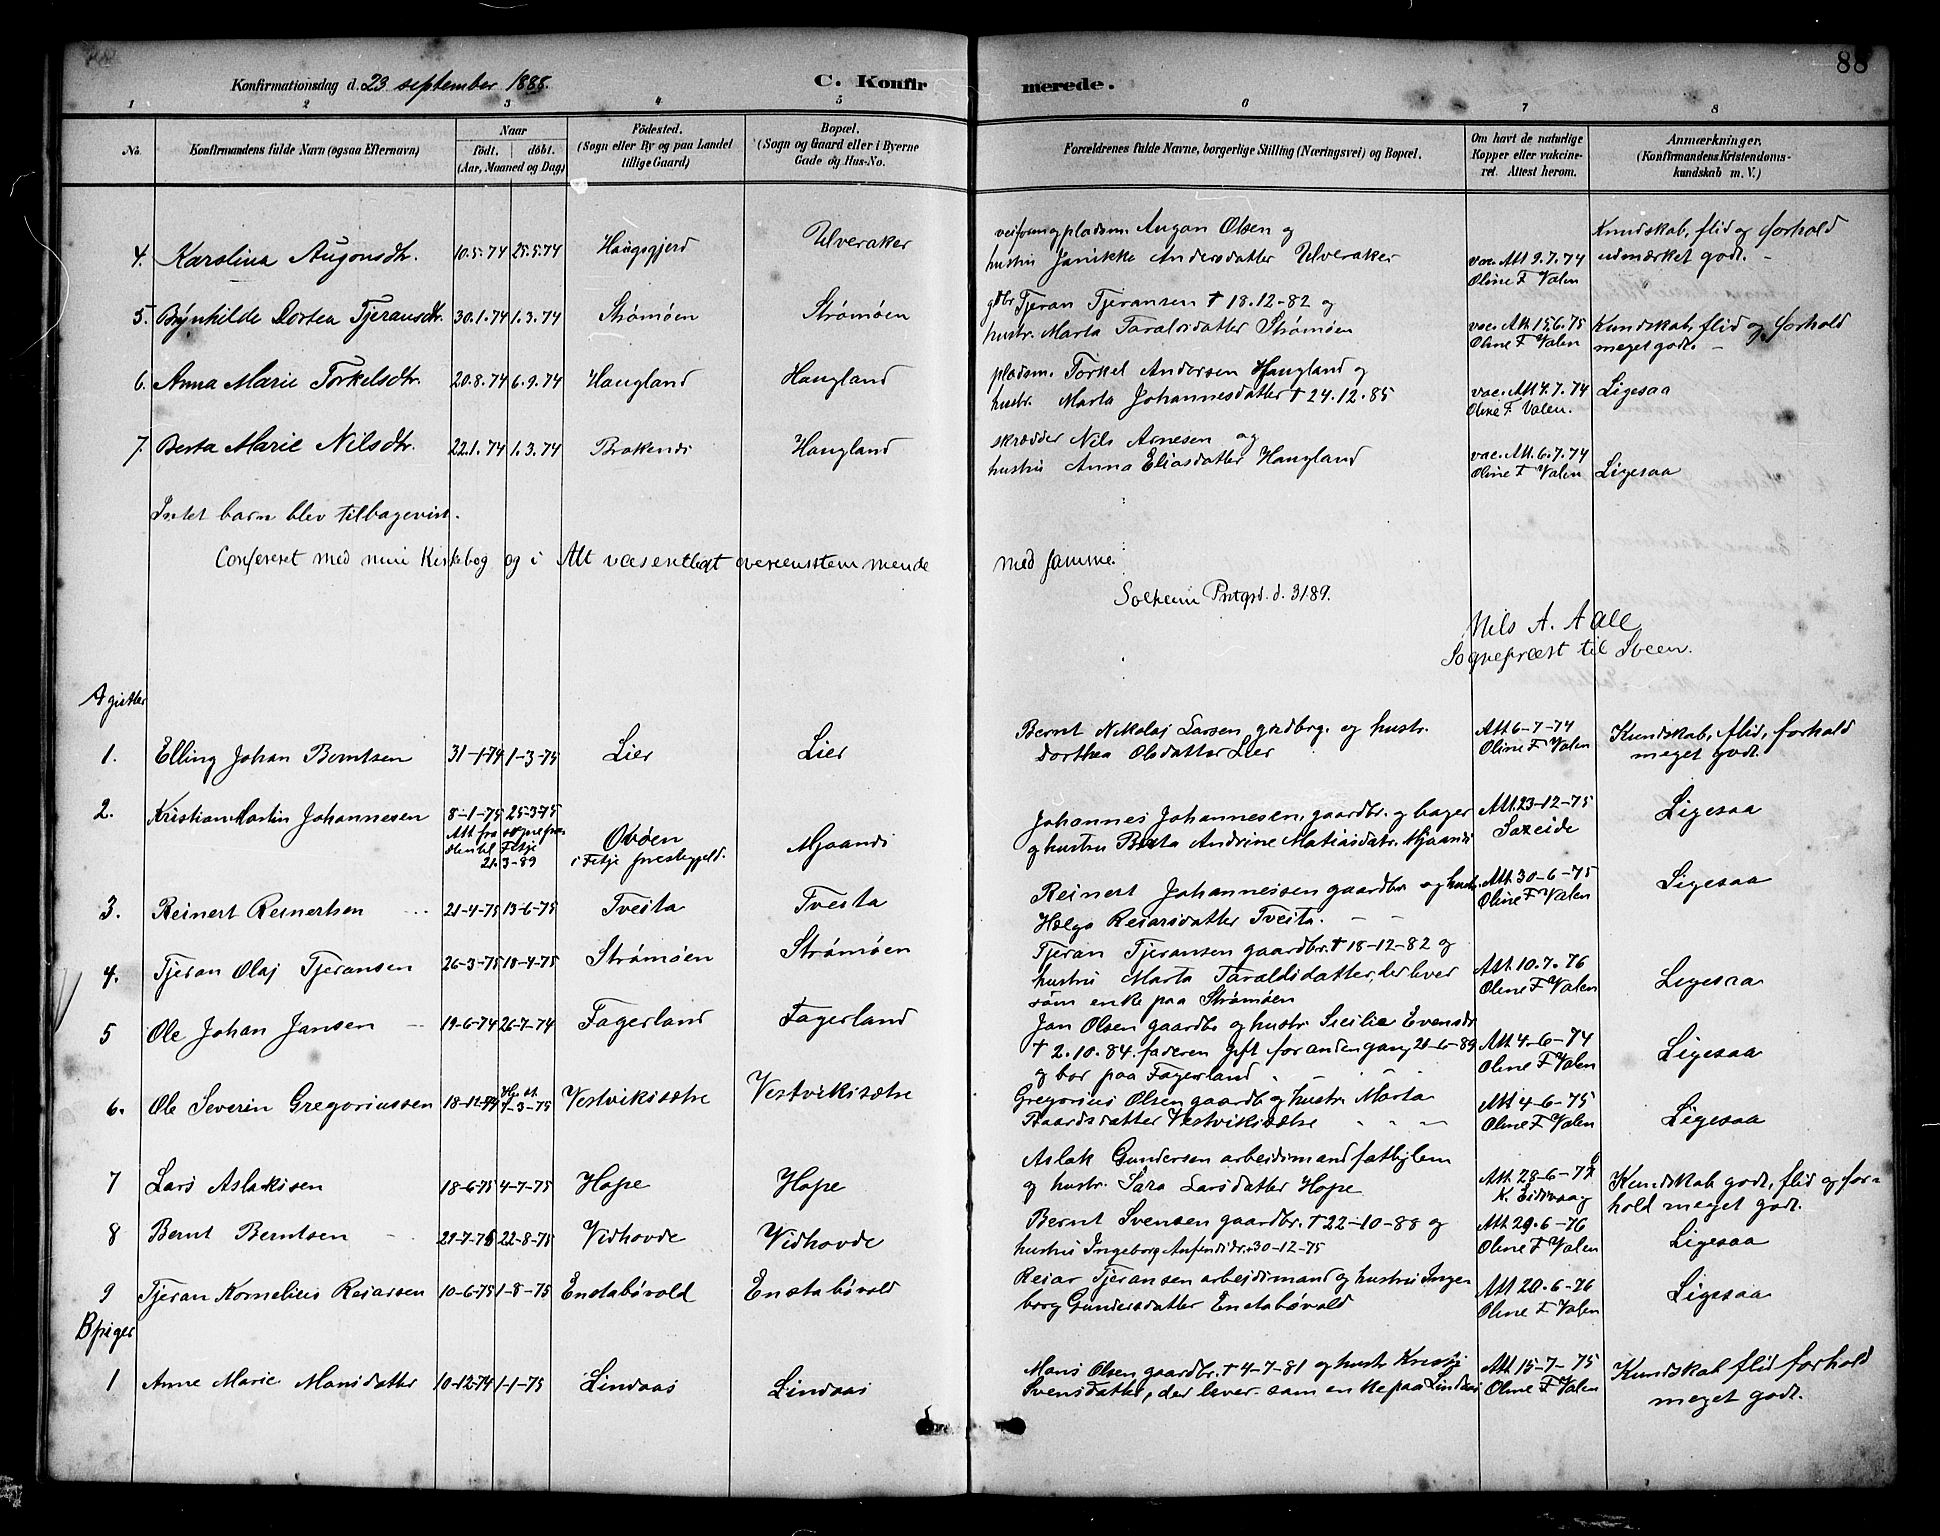 88
Konfirmationsdag d. 23 september 1888.
C. Konfirmerede.
1 2 3 4 5 6 7 8
No.
Konfirmandens fulde Navn (ogsaa Efternavn)
Naar
födt. döbt.
(Aar, Maaned og Dag)
Födested.
(Sogn eller By og paa Landet
tillige Gaard)
Bopæl.
(Sogn og Gaard eller i Byerne
Gade og Hus-No.
Forældrenes fulde Navne, borgerlige Stilling (Næringsvei) og Bopæl.
Om havt de naturlige
Kopper eller vakcine-
ret. Attest herom.
Anmærkninger.
(Konfirmandens Kristendoms-
kundskab m. V.)
4. Karolina Augonsdtr. 10.5.74 25.5.74 Haugsgjerd Ulveraker
pladsm. Augon Olsen og
hustru Janikke Andersdatter Ulveraker
vac. Att 9.7.74
Oline F Valen
Kundskab, flid og forhold
udmærket godt.
5. Brynhilde Dortea Tjeransdtr. 30.1.74 1.3.74 Strømøen Strømøen
gdbr Tjeran Tjeransen † 18.12-82 og
hustr. Marta Taraldsdatter Strømøen
vac. Att. 15.6.75
Oline F Valen
Kundskab, flid og forhold
meget godt. –
6. Anna Marie Torkelsdtr. 20.8.74 6.9.74 Haugland Haugland
pladsm. Torkel Andersen Haugland og
hustr. Marta Johannesdatter † 24.12.85
vac. Att 4.7.74
Oline F. Valen.
Ligesaa
7. Berta Marie Nilsdtr. 22.1.74 1.3.74 Brakenes Haugland
skrædder Nils Arnesen og
hustru Anna Eliasdatter Haugland
vac. Att. 6.7.74
Oline F Valen
Ligesaa
Intet barn blev tilbagevist.
Confereret med min Kirkebog og i Alt væsentligt overensstemmende med samme.
Solheim Prstgrd. d. 3189.
Nils A. Aall
Sognepræst til Sveen.
A gutter
1. Elling Johan Berntsen 31-1-74 1-3-75 Lier Lier
Bernt Nikolaj Larsen, grdbrg. og hustr.
Dorthea Olsdatter Lier
Att 6-7-74
Oline F Valen
Kundskab, flid, forhold
meget godt.
2. Kristian Martin Johannesen 8-1-75 25-3-75
Att fra sognepræ-
sten til Fetje
21-3-89
i Fetje prestegjeld.
Johannes Johannesen, gaardbr. og bager
og hustru Berta Andrine Matiasdatr. Mjaanes
Att. 23-12-75
Ligesaa
3. Reinert Reinertsen 21-4-75 13-6-75 Tveita Tveita
Reinert Johannessen gaardbr og hustr.
Helga Reiarsdatter Tveita.
Att. 30-6-75
Oline F Valen
Ligesaa
4. Tjeran Olaj Tjeransen 26-3-75 18-4-75 Strømøen Strømøen
Tjeran Tjeransen gaardbr. † 18-12-82 og
hustru Marta Taraldsdatter, der lever
som enke paa Strømøen
Att. 10.7.76
Oline F Valen
Ligesaa
5 Ole Johan Jansen 19-6-74 26-7-74 Fagerland Fagerland
Jan Olsen gaardbr og hustr Sicilie Evensdr
† 2.10.84. faderen gift for anden gang 21-6-89
og bor paa Fagerland
Att 4-6-74
Oline F Valen
Ligesaa
6. Ole Severin Gregoriussen 18-12-74 7-3-75 Vestvikisætre Vestvikisætre
Gregorius Olsen gaardb og hustr. Marta
Baardsdatter Vestvikisætre
Att 4-6-75
Oline F Valen
Ligesaa
7 Lars Aslaksen 18-6-75 4-7-75 Hope Hope
Aslak Gundersen arbeidsmand fatbylem
og hustr. Sara Larsdatter Hope
Att. 28-6-7
K. Eidsvaag
Kundskab godt, flid og for-
hold meget godt.
8 Bernt Berntsen 29-7-75 22-8-75 Vidhovde Vidhovde
Bernt Svensen gaardbr. † 22-10-88 og
hustru Ingeborg Anfensdr. 30-12-75
Att. 29.6-76
Oline F Valen
Ligesaa
9 Tjeran Kornelius Reiarsen 10-6-75 1-8-75 Enstabøvold Enstabøvold
Reiar Tjeransen arbeidsmand og hustru Inge-
borg Gundersdatter Enstabøvold
Att 20-6-76
Oline F. Valen
Ligesaa
B piger
1 Anne Marie Monsdatter 10-12-74 1-1-75 Lindaas Lindaas
Mons Olsen gaardbr. † 4-7-81 og hustr
Svensdatter, der lever som enke paa Lindaas
Att 15-7-75
Oline F Valen
Kundskab flid forhold
meget godt.